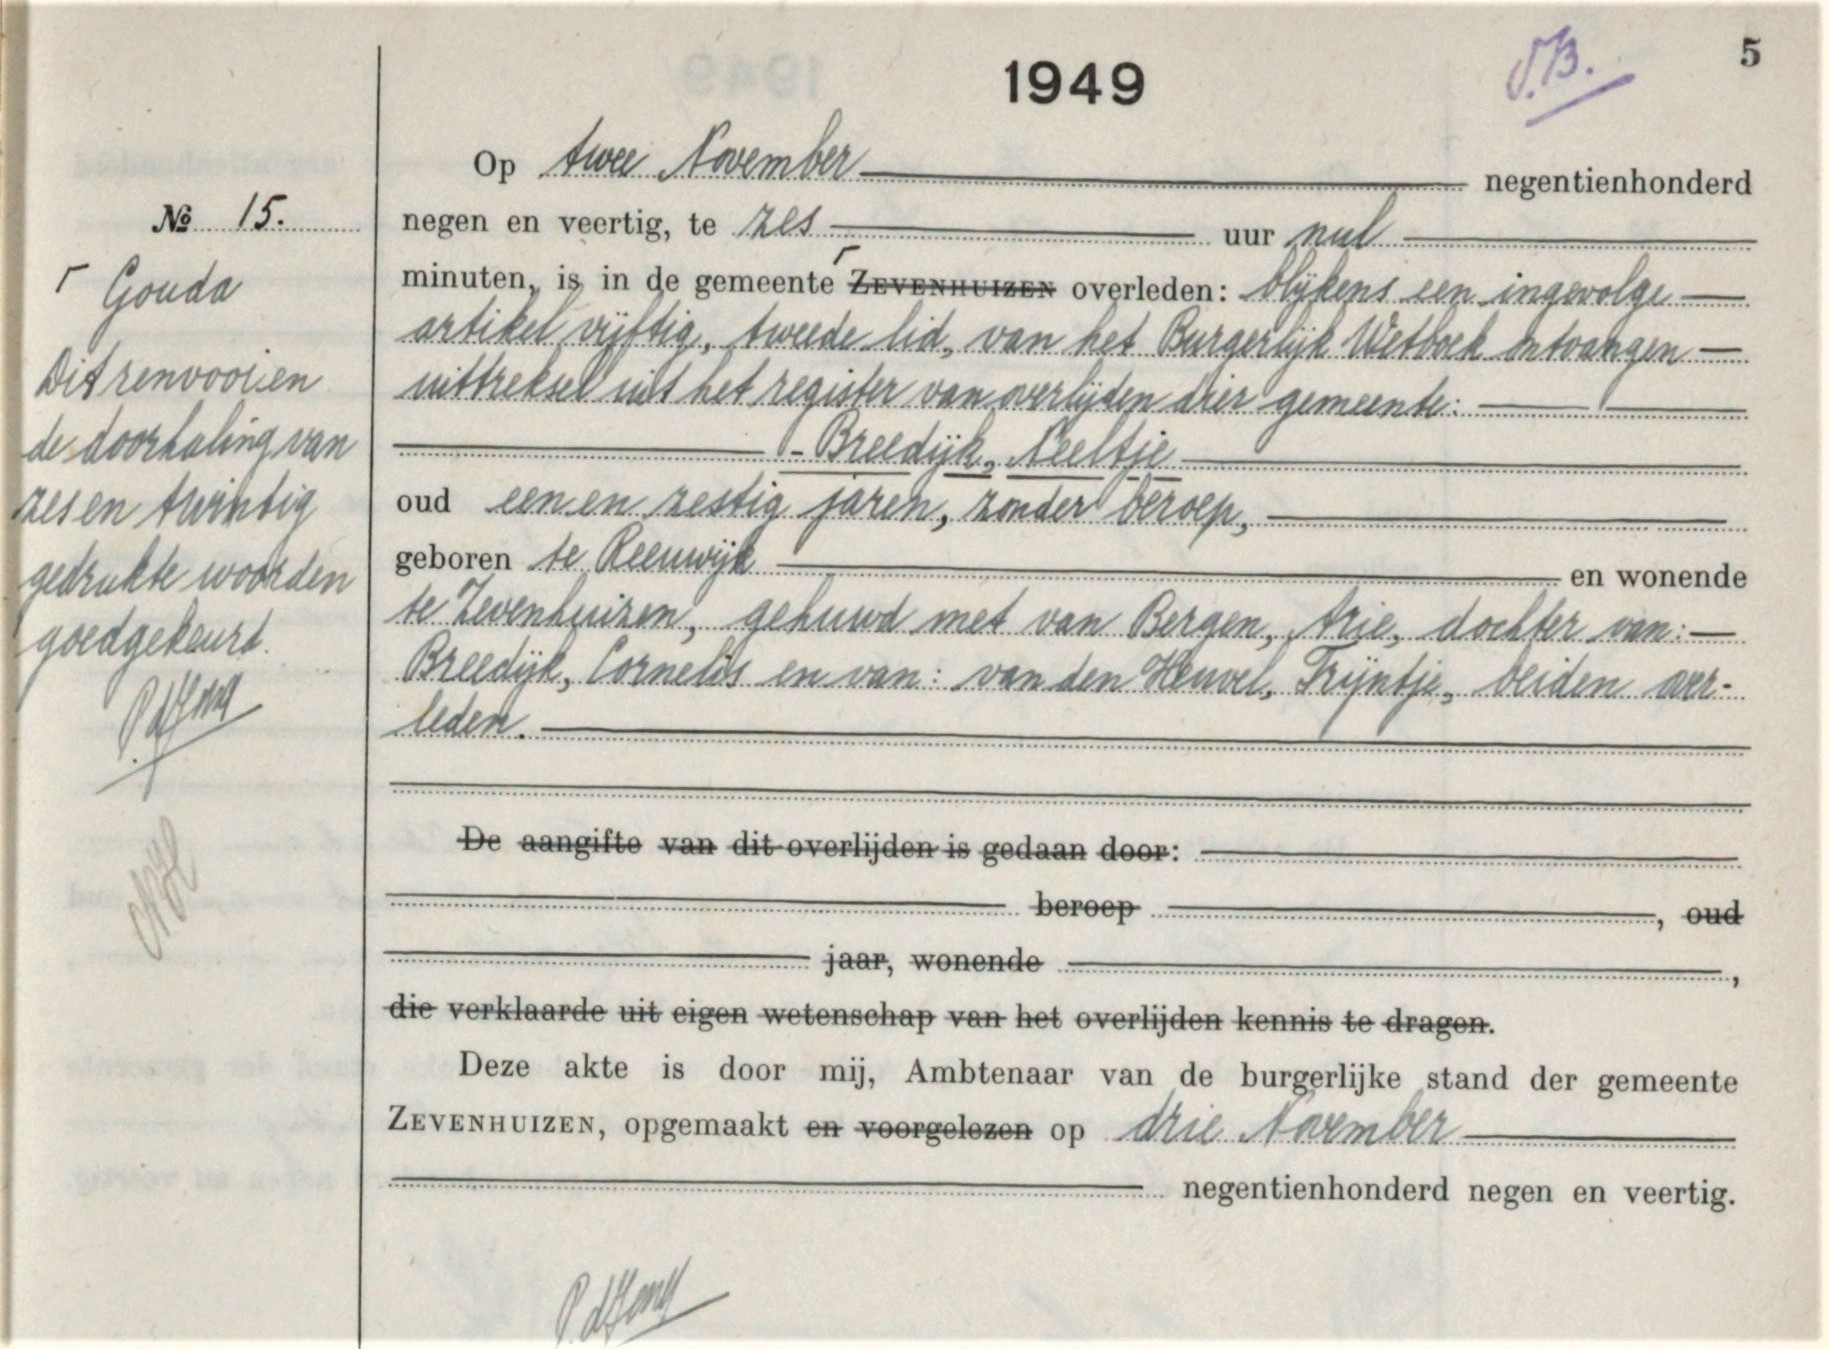 1949
V.B.
5
Op twee November negentienhonderd
No 15.
negen en veertig, te zes uur nul
Gouda
minuten, is in de gemeente ZEVENHUIZEN overleden: blijkens een ingevolge
artikel vijftig, tweede lid, van het Burgerlijk Wetboek ontvangen
uittreksel uit het register van overlijden dier gemeente:
- Breedijk, Neeltje
oud een en zestig jaren, zonder beroep,
geboren te Reeuwijk en wonende
te Zevenhuizen, gehuwd met van Bergen, Arie, dochter van:
Breedijk, Cornelis en van: van den Heuvel, Trijntje, beiden over-
leden.
Dit renvooi en
de doorhaling van
zes en twintig
gedrukte woorden
goedgekeurd.
De aangifte van dit overlijden is gedaan door:
beroep , oud
jaar, wonende ,
die verklaarde uit eigen wetenschap van het overlijden kennis te dragen.
Deze akte is door mij, Ambtenaar van de burgerlijke stand der gemeente
ZEVENHUIZEN, opgemaakt en voorgelezen op drie November
negentienhonderd negen en veertig.